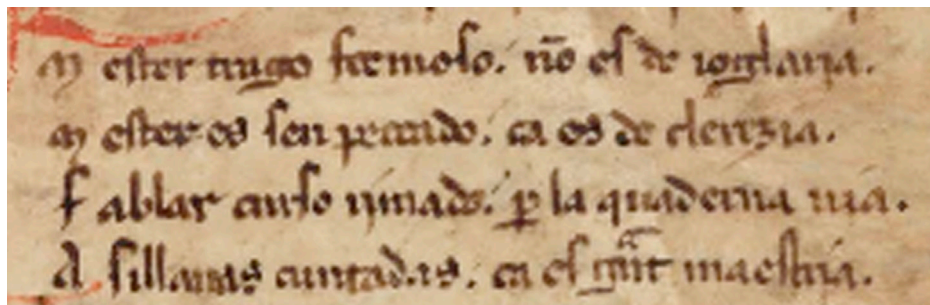 M ester trago fermoso. nõ es de ioglaria.
M ester es sen peccado. ca es de clerezia.
F ablar curso rimado. ꝑ la quaderna uia.
A sillauas cuntadas. ca es gͣnt maestria.